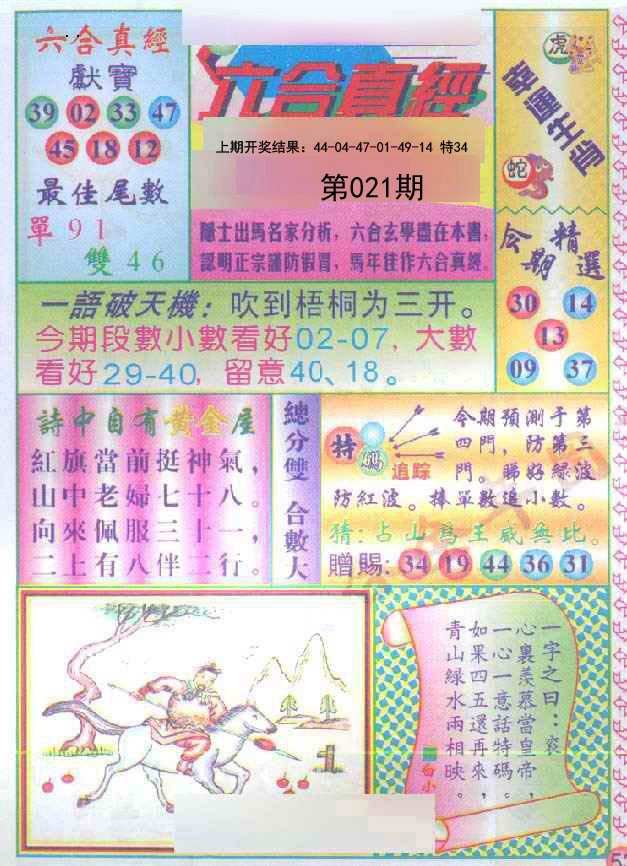 六合真經
獻寶
39 02 33 47
45 18 12
最佳尾數
單91
雙46
六合真經
上期开奖结果: 44-04-47-01-49-14 特34
第021期
隱士出馬名家分析，六合玄學盡在本書，
認明正宗謹防假冒，馬年佳作六合真經。
虎
蛇
今期精選
30 14
13
09 37
一語破天機：吹到梧桐为三开。
今期段數小數看好02-07，大數
看好29-40，留意40、18。
詩中自有黄金屋
紅旗當前挺神氣，
山中老婦七十八。
向來佩服三十一，
二上有八伴二行。
總分雙 合數大
特碼追踪
今期預測于第
四門，防第三
門。睇好綠波
防紅波。捧單數追小數。
猜：占山為王威無比。
贈賜：34 19 44 36 31
一字之曰：衮
心裏羨慕當皇帝，
一心一意話特碼。
如果四五還再來，
青山綠水兩相映。
白小
1
5